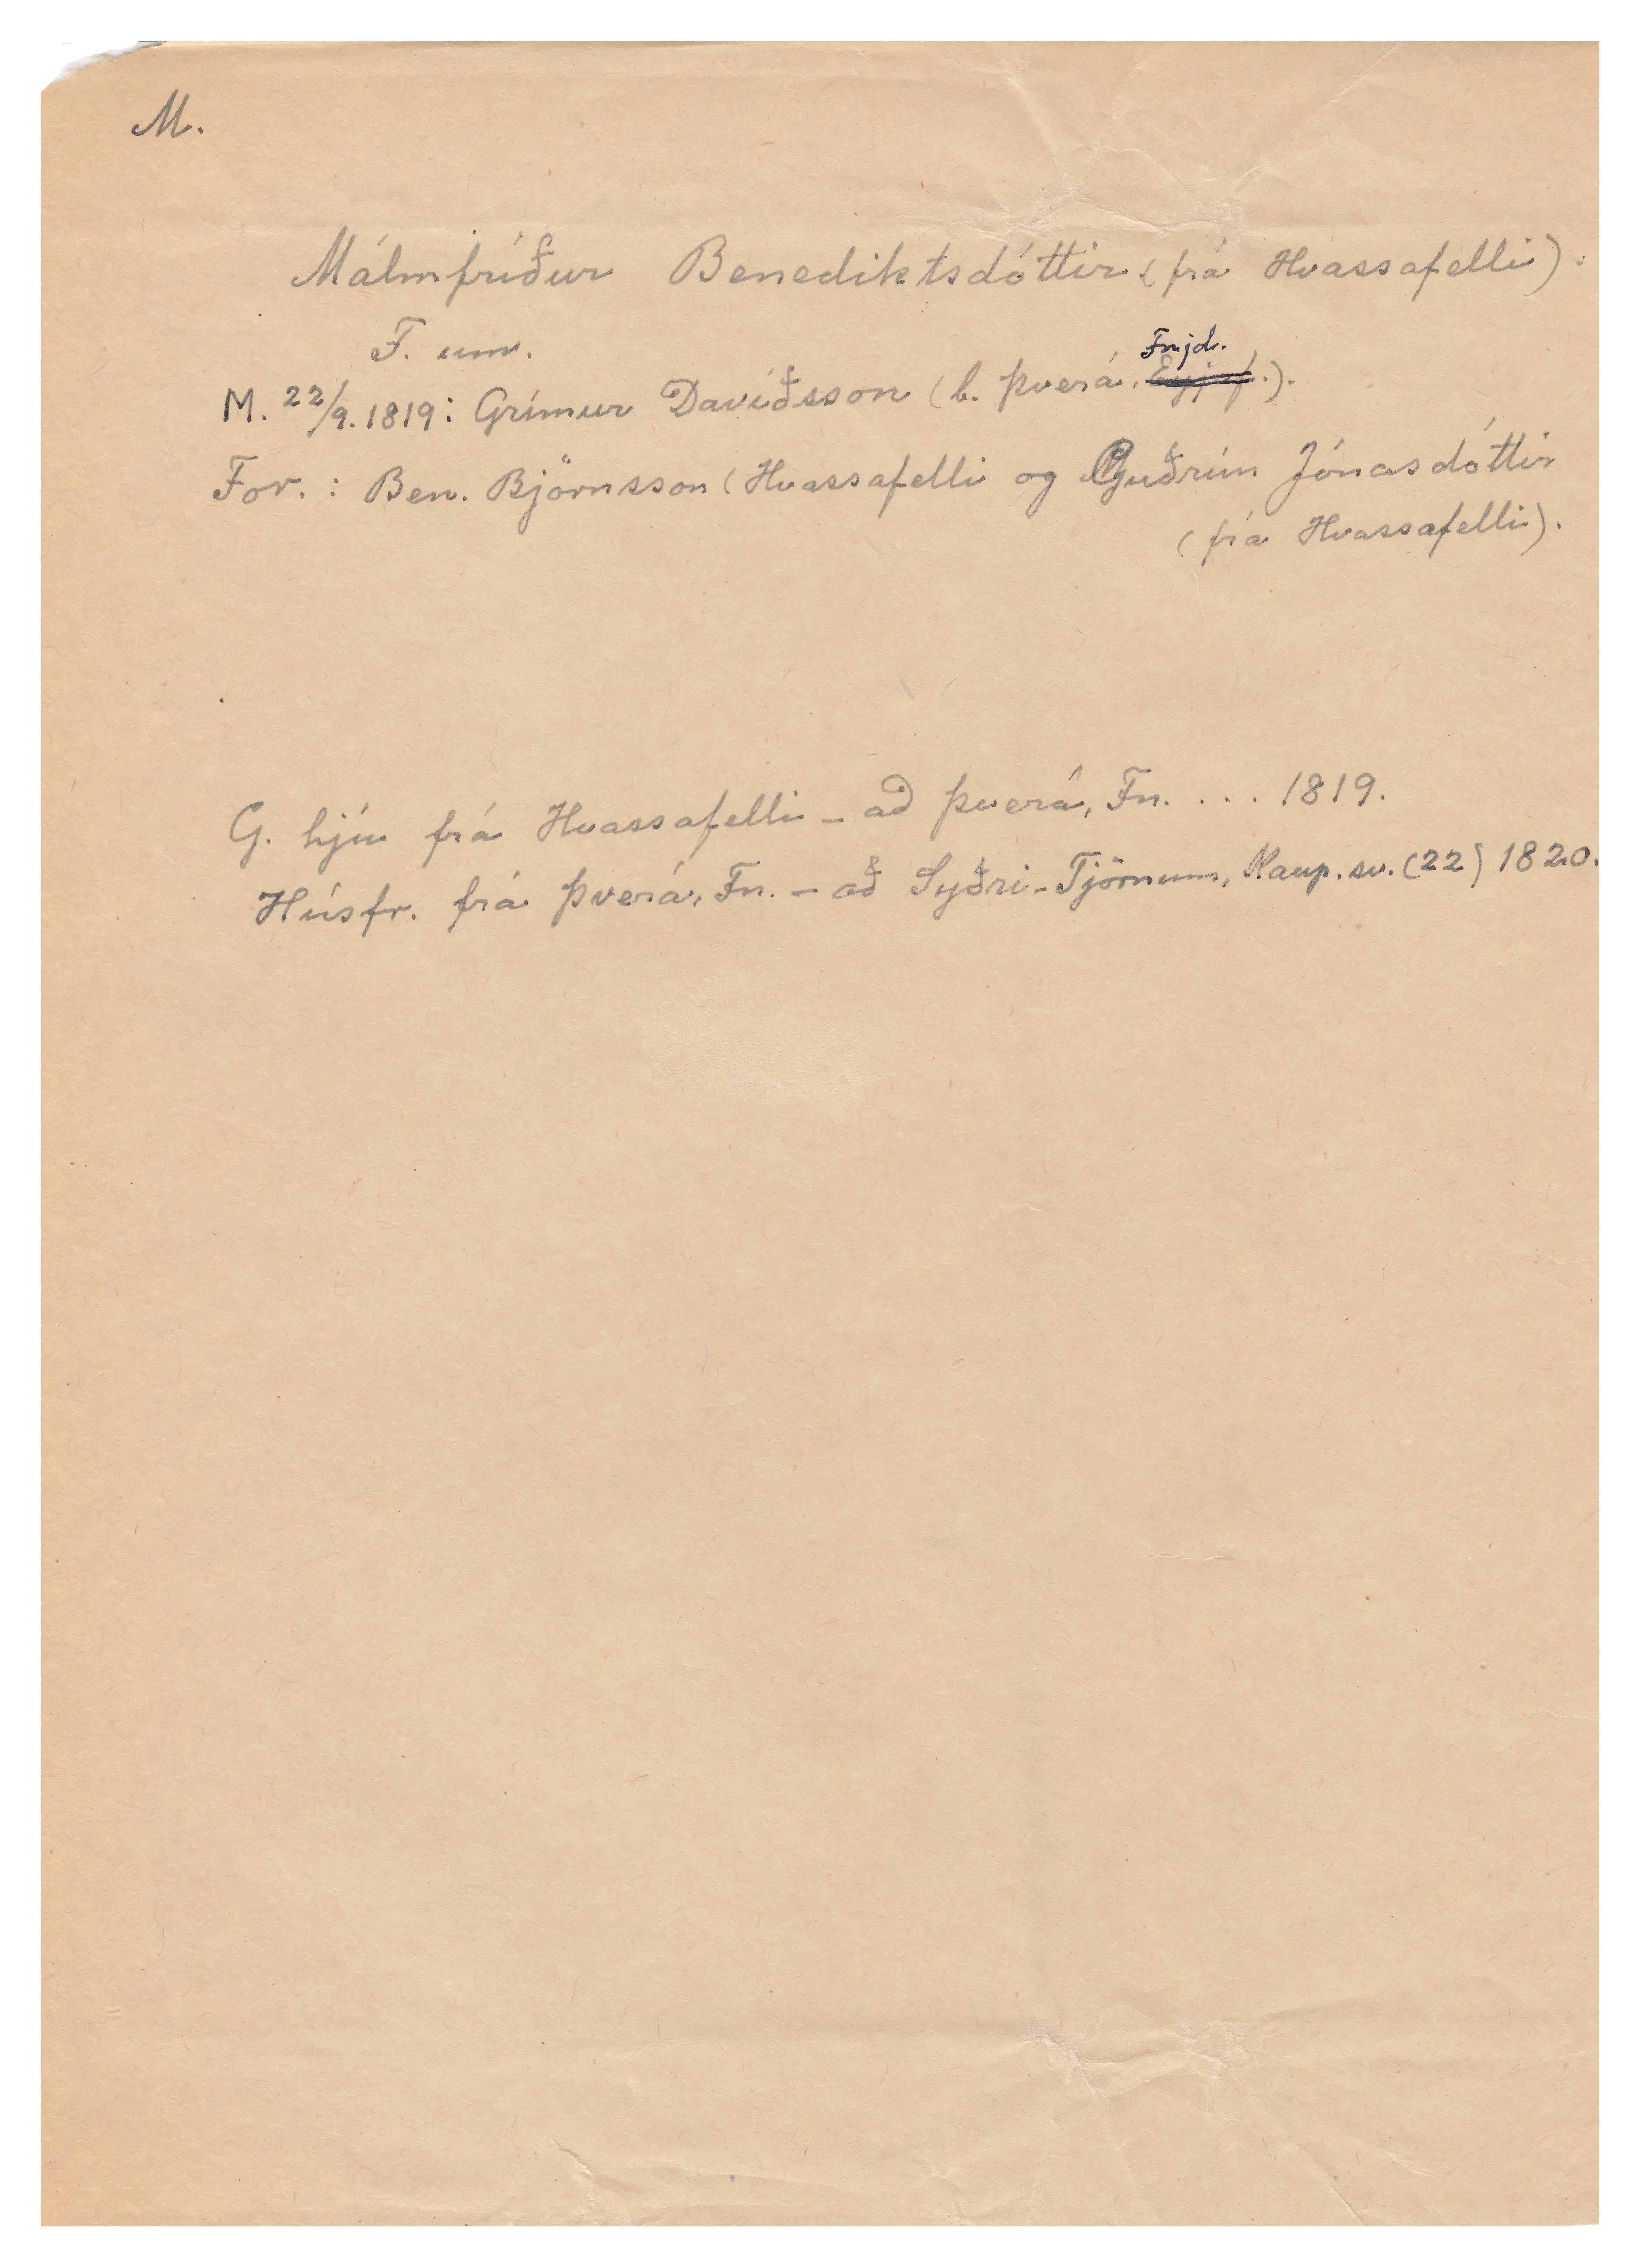 M.
Málmfríður Benediktsdóttir (frá Hvassafelli).
F. um.
Fnjd.
M. 22/9. 1819: Grímur Davíðsson (b. Þverá, Eyjaf.).
For.: Ben. Björnsson (Hvassafelli og Guðrún Jónasdóttir
(frá Hvassafelli).
G. hjú frá Hvassafelli - að Þverá, Fn. . . . 1819.
Húsfr. frá Þverá, Fn. - að Syðri-Tjörnum, Kaup. sv. (22) 1820.